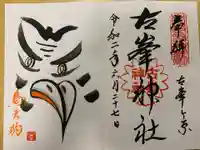 奉拝
古峯ヶ原
古峯神社
令和二年六月二十七日
烏天狗